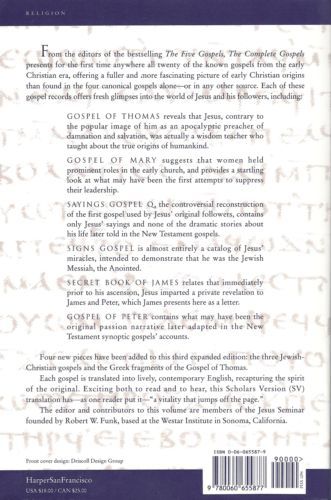 RELIGION
From the editors of the bestselling The Five Gospels, The Complete Gospels
presents for the first time anywhere all twenty of the known gospels from the early
Christian era, offering a fuller and more fascinating picture of early Christian origins
than found in the four canonical gospels alone—or in any other source. Each of these
gospel records offers fresh glimpses into the world of Jesus and his followers, including:
GOSPEL OF THOMAS reveals that Jesus, contrary to
the popular image of him as an apocalyptic preacher of
damnation and salvation, was actually a wisdom teacher
who taught about the true origins of humankind.
GOSPEL OF MARY suggests that women held
prominent roles in the early church, and provides a startling
look at what may have been the first attempts to suppress
their leadership.
SAYINGS GOSPEL Q, the controversial reconstruction
of the first gospel used by Jesus' original followers, contains
only Jesus' sayings and none of the dramatic stories about
his life later told in the New Testament gospels.
SIGNS GOSPEL is almost entirely a catalog of Jesus'
miracles, intended to demonstrate that he was the Jewish
Messiah, the Anointed.
SECRET BOOK OF JAMES relates that immediately
prior to his ascension, Jesus imparted a private revelation to
James and Peter, which James presents here as a letter.
GOSPEL OF PETER contains what may have been the
original passion narrative later adapted in the New
Testament synoptic gospels' accounts.
Four new pieces have been added to this third expanded edition: the three Jewish-
Christian gospels and the Greek fragments of the Gospel of Thomas.
Each gospel is translated into lively, contemporary English, recapturing the spirit of
the original. Exciting both to read and to hear, this Scholars Version (SV)
translation has—as one reader put it—"a vitality that jumps off the page."
The editor and contributors to this volume are members of the Jesus Seminar
founded by Robert W. Funk, based at the Westar Institute in Sonoma, California.
Front cover design: Driscoll Design Group
HarperSanFrancisco
USA $18.00 / CAN $25.00
ISBN 0-06-065587-9
90000>
9 780060 655877